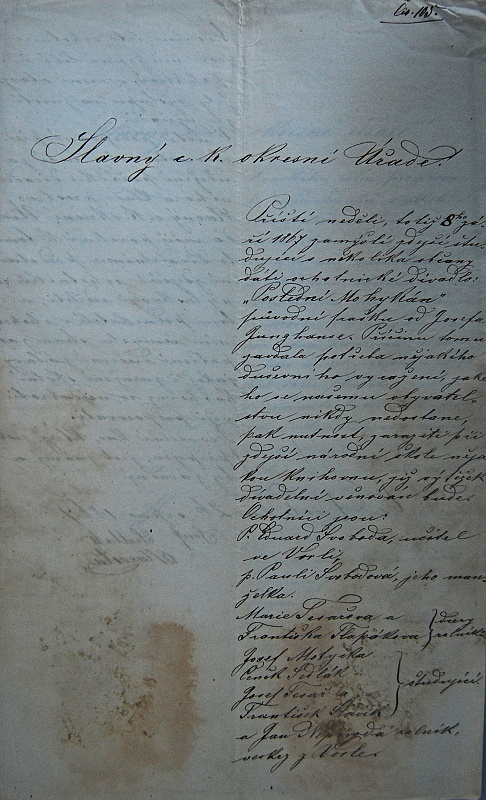 Slavný c. k. okresní Úřade!
Příští neděli, totiž 8ho zá-
ří 1867 zamýšlí zdejší stu-
dující s několika občany
dáti ochotnické divadlo:
„Poslední Mohykán"
původní frašku od Josefa
Junghanse. Příčinu tomu
zavdala potřeba nějakého
duševního vyražení, jaké-
ho se našemu obyvatel-
stvu nikdy nedostane,
pak nutnost, zaraziti při
zdejší národní škole něja-
kou knihovnu, jíž výtěžek
divadelní věnován bude.
Ochotníci jsou:
P. Eduard Svoboda, učitel
ve Vorli,
p. Pauli Svobodová, jeho man-
želka.
Marie Tesařova a
Františka Tlapákova } dcery rolníků
Josef Motyčka
Čeněk Sedlák
Josef Tesař a
František } studující.
a Jan rolník,
z Vorle.